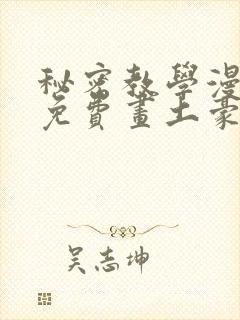 秘密教學漫
免費畫土豪
吴志坤